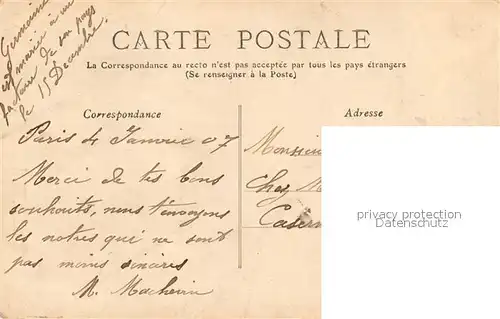 Germaine
est mariée à un
facteur de son pays
le 15 Décembre.
CARTE POSTALE
La Correspondance au recto n'est pas acceptée par tous les pays étrangers
(Se renseigner à la Poste)
Correspondance
Adresse
Paris 4 Janvier 07
Merci de tes bons
souhaits, nous t'envoyons
les notres qui ne sont
pas moins sincères
M.
Monsieur
Chez
Casern
privacy protection
Datenschutz